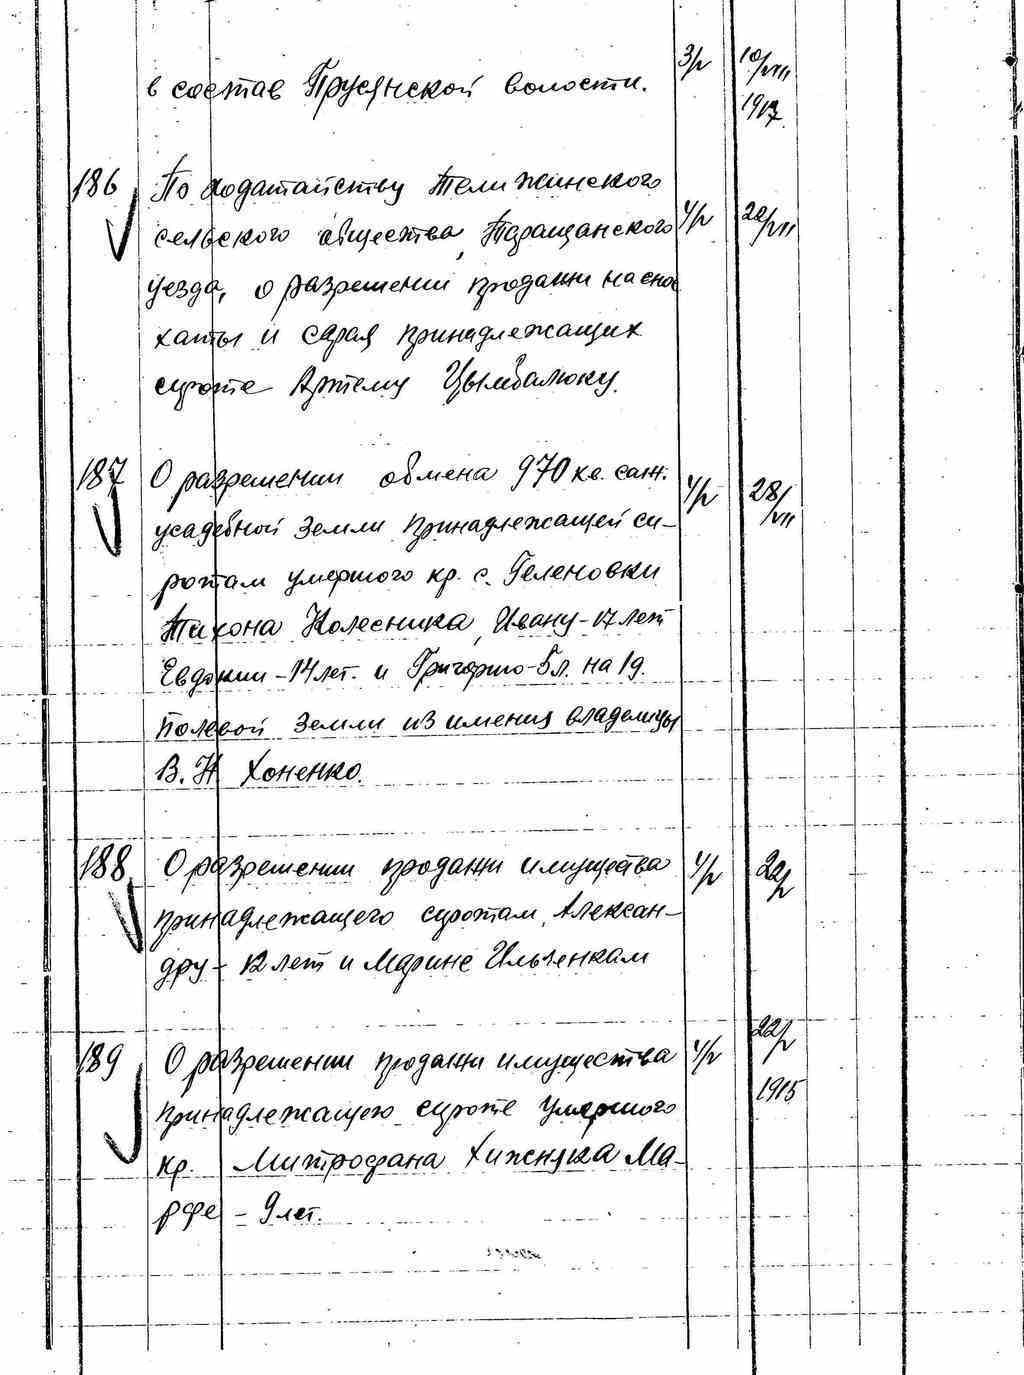 в состав Прусянской волости. 3/р 10/VII
1917
186 По ходатайству Тележинского
сельского общества, Таращанского 4/р 22/VII
уезда, о разрешении продажи на снос
хаты и сарая принадлежащих
сироте Артему Цымбалюку.
187 О разрешении обмена 970 кв. саж. 4/р 28/VII
усадебной земли принадлежащей си-
ротам умершего кр. с. Геленовки
Тихона Колесника, Ивану-17 лет
Евдокии-14 лет. и Григорию-5 л. на 1 д.
полевой земли из имения владелицы
В. Н Хоненко.
188 О разрешении продажи имущества 4/р
принадлежащего сиротам, Алексан-
дру - 12 лет и Марине Ильченкам
189 О разрешении продажи имущества 4/р 22/р
принадлежащего сироте умершего 1915
кр. Митрофана Хижнука Ма-
рфе - 9 лет.